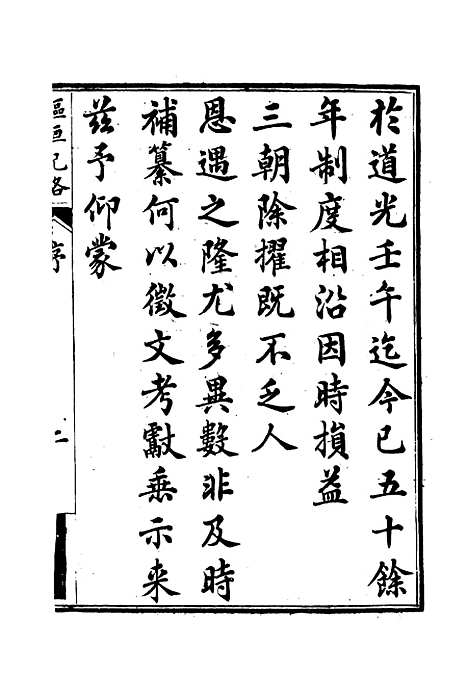 於道光壬午迄今已五十餘
年制度相沿因時損益
三朝除擢既不乏人
恩遇之隆尤多異數非及時
補纂何以徵文考獻垂示来
茲予仰蒙
樞垣記略
序
二